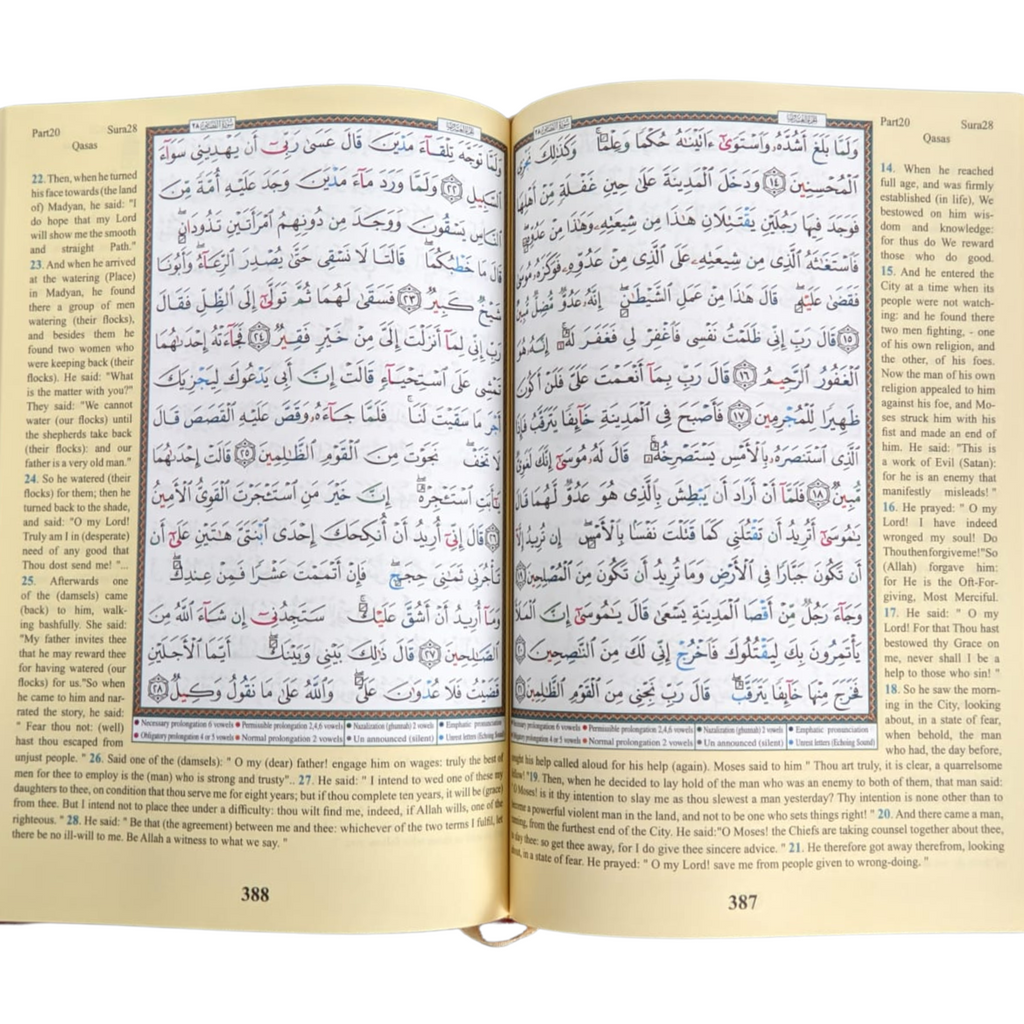 Part20 Sura28
Qasas
14. When he reached
full age, and was firmly
established (in life), We
bestowed on him wis-
dom and knowledge:
for thus do We reward
those who do good.
15. And he entered the
City at a time when its
people were not watch-
ing: and he found there
two men fighting, - one
of his own religion, and
the other, of his foes.
Now the man of his own
religion appealed to him
against his foe, and Mo-
ses struck him with his
fist and made an end of
him. He said: "This is
a work of Evil (Satan):
for he is an enemy that
manifestly misleads! "
16. He prayed: " O my
Lord! I have indeed
wronged my soul! Do
Thou then forgive me!"So
(Allah) forgave him:
for He is the Oft-For-
giving, Most Merciful.
17. He said: " O my
Lord! For that Thou hast
bestowed thy Grace on
me, never shall I be a
help to those who sin! "
18. So he saw the morn-
ing in the City, looking
about, in a state of fear,
when behold, the man
who had, the day before,
وَلَمَّا بَلَغَ أَشُدَّهُۥ وَٱسْتَوَىٰٓ ءَاتَيْنَٰهُ حُكْمًا وَعِلْمًا ۚ وَكَذَٰلِكَ
ٱلْمُحْسِنِينَ ١٤ وَدَخَلَ ٱلْمَدِينَةَ عَلَىٰ حِينِ غَفْلَةٍ مِّنْ أَهْلِهَا
فَوَجَدَ فِيهَا رَجُلَيْنِ يَقْتَتِلَانِ هَٰذَا مِن شِيعَتِهِۦ وَهَٰذَا مِنْ عَدُوِّهِۦ ۖ
فَٱسْتَغَٰثَهُ ٱلَّذِى مِن شِيعَتِهِۦ عَلَى ٱلَّذِى مِنْ عَدُوِّهِۦ فَوَكَزَهُۥ مُوسَىٰ
فَقَضَىٰ عَلَيْهِ ۖ قَالَ هَٰذَا مِنْ عَمَلِ ٱلشَّيْطَٰنِ ۖ إِنَّهُۥ عَدُوٌّ مُّضِلٌّ مُّبِينٌ
١٥ قَالَ رَبِّ إِنِّى ظَلَمْتُ نَفْسِى فَٱغْفِرْ لِى فَغَفَرَ لَهُۥٓ ۚ إِنَّهُۥ هُوَ
ٱلْغَفُورُ ٱلرَّحِيمُ ١٦ قَالَ رَبِّ بِمَآ أَنْعَمْتَ عَلَىَّ فَلَنْ أَكُونَ
ظَهِيرًا لِّلْمُجْرِمِينَ ١٧ فَأَصْبَحَ فِى ٱلْمَدِينَةِ خَآئِفًا يَتَرَقَّبُ فَإِذَا
ٱلَّذِى ٱسْتَنصَرَهُۥ بِٱلْأَمْسِ يَسْتَصْرِخُهُۥ ۚ قَالَ لَهُۥ مُوسَىٰٓ إِنَّكَ لَغَوِىٌّ
مُّبِينٌ ١٨ فَلَمَّآ أَنْ أَرَادَ أَن يَبْطِشَ بِٱلَّذِى هُوَ عَدُوٌّ لَّهُمَا قَالَ
يَٰمُوسَىٰٓ أَتُرِيدُ أَن تَقْتُلَنِى كَمَا قَتَلْتَ نَفْسًۢا بِٱلْأَمْسِ ۖ إِن تُرِيدُ إِلَّآ
أَن تَكُونَ جَبَّارًا فِى ٱلْأَرْضِ وَمَا تُرِيدُ أَن تَكُونَ مِنَ ٱلْمُصْلِحِينَ ١٩
وَجَآءَ رَجُلٌ مِّنْ أَقْصَا ٱلْمَدِينَةِ يَسْعَىٰ قَالَ يَٰمُوسَىٰٓ إِنَّ ٱلْمَلَأَ
يَأْتَمِرُونَ بِكَ لِيَقْتُلُوكَ فَٱخْرُجْ إِنِّى لَكَ مِنَ ٱلنَّٰصِحِينَ ٢٠
فَخَرَجَ مِنْهَا خَآئِفًا يَتَرَقَّبُ ۖ قَالَ رَبِّ نَجِّنِى مِنَ ٱلْقَوْمِ ٱلظَّٰلِمِينَ ٢١
prolongation 6 vowels ● Permissible prolongation 2,4,6 vowels ● Nazalization (ghunnah) 2 vowels ● Emphatic pronunciation
prolongation 4 or 5 vowels ● Normal prolongation 2 vowels ● Un announced (silent) ● Unrest letters (Echoing Sound)
sought his help called aloud for his help (again). Moses said to him " Thou art truly, it is clear, a quarrelsome
fellow! "19. Then, when he decided to lay hold of the man who was an enemy to both of them, that man said:
"O Moses! is it thy intention to slay me as thou slewest a man yesterday? Thy intention is none other than to
become a powerful violent man in the land, and not to be one who sets things right! " 20. And there came a man,
running, from the furthest end of the City. He said:"O Moses! the Chiefs are taking counsel together about thee,
to slay thee: so get thee away, for I do give thee sincere advice. " 21. He therefore got away therefrom, looking
about, in a state of fear. He prayed: " O my Lord! save me from people given to wrong-doing. "
387
Part20 Sura28
Qasas
22. Then, when he turned
his face towards (the land
of) Madyan, he said: "I
do hope that my Lord
will show me the smooth
and straight Path."
23. And when he arrived
at the watering (Place)
in Madyan, he found
there a group of men
watering (their flocks),
and besides them he
found two women who
were keeping back (their
flocks). He said: "What
is the matter with you?"
They said: "We cannot
water (our flocks) until
the shepherds take back
(their flocks): and our
father is a very old man."
24. So he watered (their
flocks) for them; then he
turned back to the shade,
and said: "O my Lord!
Truly am I in (desperate)
need of any good that
Thou dost send me! "...
25. Afterwards one
of the (damsels) came
(back) to him, walk-
ing bashfully. She said:
"My father invites thee
that he may reward thee
for having watered (our
flocks) for us."So when
he came to him and nar-
rated the story, he said:
" Fear thou not: (well)
hast thou escaped from
وَلَمَّا تَوَجَّهَ تِلْقَآءَ مَدْيَنَ قَالَ عَسَىٰ رَبِّىٓ أَن يَهْدِيَنِى سَوَآءَ
ٱلسَّبِيلِ ٢٢ وَلَمَّا وَرَدَ مَآءَ مَدْيَنَ وَجَدَ عَلَيْهِ أُمَّةً مِّنَ
ٱلنَّاسِ يَسْقُونَ وَوَجَدَ مِن دُونِهِمُ ٱمْرَأَتَيْنِ تَذُودَانِ ۖ
قَالَ مَا خَطْبُكُمَا ۖ قَالَتَا لَا نَسْقِى حَتَّىٰ يُصْدِرَ ٱلرِّعَآءُ ۖ وَأَبُونَا
شَيْخٌ كَبِيرٌ ٢٣ فَسَقَىٰ لَهُمَا ثُمَّ تَوَلَّىٰٓ إِلَى ٱلظِّلِّ فَقَالَ
رَبِّ إِنِّى لِمَآ أَنزَلْتَ إِلَىَّ مِنْ خَيْرٍ فَقِيرٌ ٢٤ فَجَآءَتْهُ إِحْدَىٰهُمَا
تَمْشِى عَلَى ٱسْتِحْيَآءٍ قَالَتْ إِنَّ أَبِى يَدْعُوكَ لِيَجْزِيَكَ
أَجْرَ مَا سَقَيْتَ لَنَا ۚ فَلَمَّا جَآءَهُۥ وَقَصَّ عَلَيْهِ ٱلْقَصَصَ قَالَ
لَا تَخَفْ ۖ نَجَوْتَ مِنَ ٱلْقَوْمِ ٱلظَّٰلِمِينَ ٢٥ قَالَتْ إِحْدَىٰهُمَا
يَٰٓأَبَتِ ٱسْتَـْٔجِرْهُ ۖ إِنَّ خَيْرَ مَنِ ٱسْتَـْٔجَرْتَ ٱلْقَوِىُّ ٱلْأَمِينُ
٢٦ قَالَ إِنِّىٓ أُرِيدُ أَنْ أُنكِحَكَ إِحْدَى ٱبْنَتَىَّ هَٰتَيْنِ عَلَىٰٓ أَن
تَأْجُرَنِى ثَمَٰنِىَ حِجَجٍ ۖ فَإِنْ أَتْمَمْتَ عَشْرًا فَمِنْ عِندِكَ ۖ
وَمَآ أُرِيدُ أَنْ أَشُقَّ عَلَيْكَ ۚ سَتَجِدُنِىٓ إِن شَآءَ ٱللَّهُ مِنَ
ٱلصَّٰلِحِينَ ٢٧ قَالَ ذَٰلِكَ بَيْنِى وَبَيْنَكَ ۖ أَيَّمَا ٱلْأَجَلَيْنِ
قَضَيْتُ فَلَا عُدْوَٰنَ عَلَىَّ ۖ وَٱللَّهُ عَلَىٰ مَا نَقُولُ وَكِيلٌ ٢٨
● Necessary prolongation 6 vowels ● Permissible prolongation 2,4,6 vowels ● Nazalization (ghunnah) 2 vowels ● Emphatic pronunciation
● Obligatory prolongation 4 or 5 vowels ● Normal prolongation 2 vowels ● Un announced (silent) ● Unrest letters (Echoing Sound)
unjust people. " 26. Said one of the (damsels): " O my (dear) father! engage him on wages: truly the best of
men for thee to employ is the (man) who is strong and trusty".. 27. He said: " I intend to wed one of these my
daughters to thee, on condition that thou serve me for eight years; but if thou complete ten years, it will be (grace)
from thee. But I intend not to place thee under a difficulty: thou wilt find me, indeed, if Allah wills, one of the
righteous. " 28. He said: " Be that (the agreement) between me and thee: whichever of the two terms I fulfil, let
there be no ill-will to me. Be Allah a witness to what we say. "
388